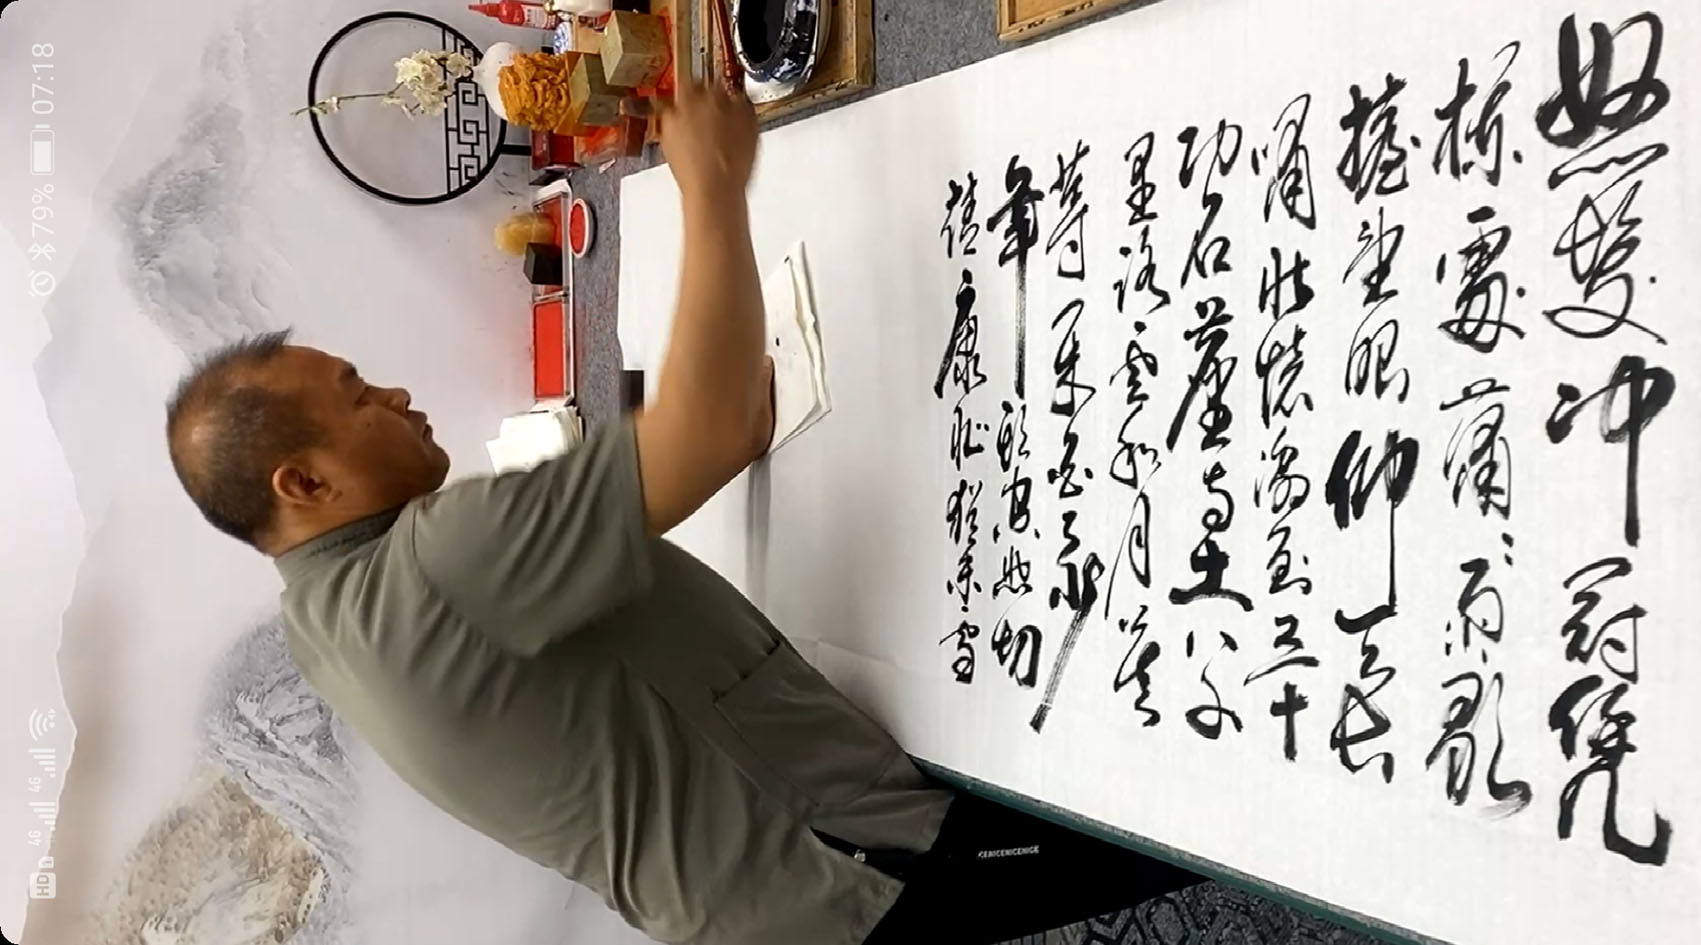 怒髮冲冠凭
栏處潇潇雨歇
抬望眼仰天长
啸壮懷激烈三十
功名塵与土八千
里路云和月莫
等闲白了少
年头空悲切
靖康耻犹未雪
07:18
79%
4G
4G
HD